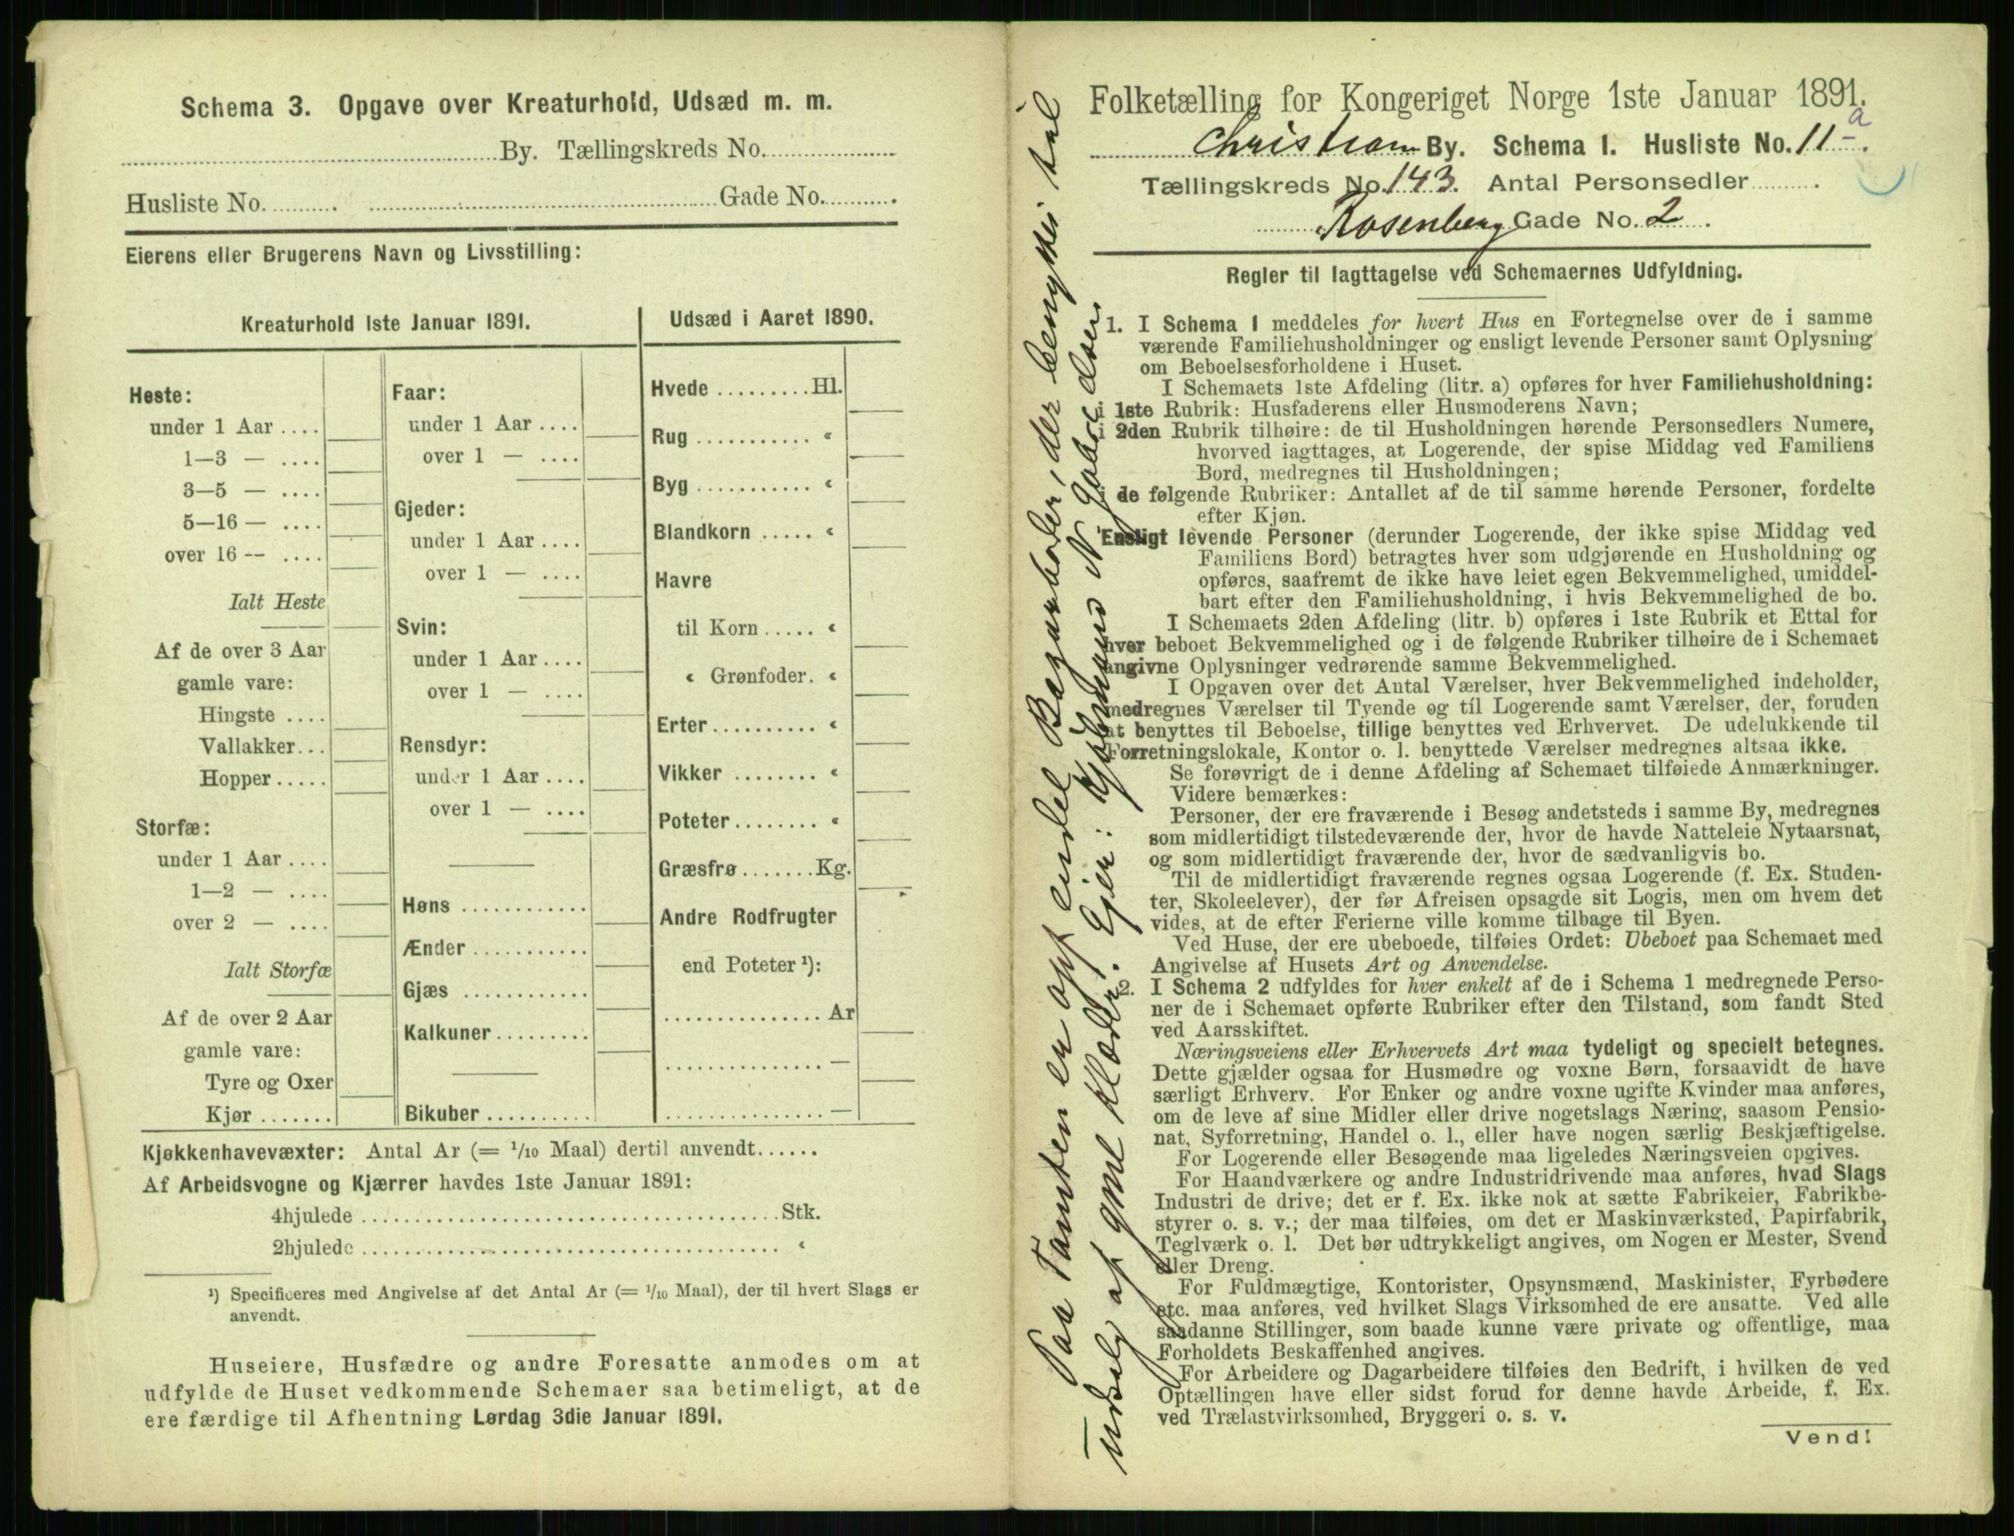 Schema 3. Opgave over Kreaturhold, Udsæd m. m.
By. Tællingskreds No.
Husliste No. Gade No.
Eierens eller Brugerens Navn og Livsstilling:
Kreaturhold 1ste Januar 1891.
Heste:
under 1 Aar ....
1—3 — ....
3—5 — ....
5—16 — ....
over 16 — ....
Ialt Heste
Af de over 3 Aar
gamle vare:
Hingste ....
Vallakker...
Hopper.....
Storfæ:
under 1 Aar ....
1—2 — ....
over 2 — ....
Ialt Storfæ
Af de over 2 Aar
gamle vare:
Tyre og Oxer
Kjør .......
Faar:
under 1 Aar ....
over 1 — ....
Gjeder:
under 1 Aar ....
over 1 — ....
Svin:
under 1 Aar ....
over 1 — ....
Rensdyr:
under 1 Aar ....
over 1 — ....
Høns ............
Ænder ...........
Gjæs ............
Kalkuner.........
Bikuber ..........
Udsæd i Aaret 1890.
Hvede .........Hl.
Rug ........... «
Byg ........... «
Blandkorn ..... «
Havre
til Korn ..... «
« Grønfoder. «
Erter.......... «
Vikker ........ «
Poteter........ «
Græsfrø.......Kg.
Andre Rodfrugter
end Poteter ¹):
............... Ar
............... —
............... —
Kjøkkenhavevæxter: Antal Ar (= 1/10 Maal) dertil anvendt......
Af Arbeidsvogne og Kjærrer havdes 1ste Januar 1891:
4hjulede ........................................Stk.
2hjulede ........................................ «
¹) Specificeres med Angivelse af det Antal Ar (= 1/10 Maal), der til hvert Slags er
anvendt.
Huseiere, Husfædre og andre Foresatte anmodes om at
udfylde de Huset vedkommende Schemaer saa betimeligt, at de
ere færdige til Afhentning Lørdag 3die Januar 1891.
Folketælling for Kongeriget Norge 1ste Januar 1891.
Christiania By. Schema 1. Husliste No. 11 a.
Tællingskreds No. 143. Antal Personsedler ........ .
Rosenberg Gade No. 2 .
Regler til Iagttagelse ved Schemaernes Udfyldning.
1. I Schema 1 meddeles for hvert Hus en Fortegnelse over de i samme
værende Familiehusholdninger og ensligt levende Personer samt Oplysning
om Beboelsesforholdene i Huset.
I Schemaets 1ste Afdeling (litr. a) opføres for hver Familiehusholdning:
i 1ste Rubrik: Husfaderens eller Husmoderens Navn;
i 2den Rubrik tilhøire: de til Husholdningen hørende Personsedlers Numere,
hvorved iagttages, at Logerende, der spise Middag ved Familiens
Bord, medregnes til Husholdningen;
i de følgende Rubriker: Antallet af de til samme hørende Personer, fordelte
efter Kjøn.
Ensligt levende Personer (derunder Logerende, der ikke spise Middag ved
Familiens Bord) betragtes hver som udgjørende en Husholdning og
opføres, saafremt de ikke have leiet egen Bekvemmelighed, umiddel-
bart efter den Familiehusholdning, i hvis Bekvemmelighed de bo.
I Schemaets 2den Afdeling (litr. b) opføres i 1ste Rubrik et Ettal for
hver beboet Bekvemmelighed og i de følgende Rubriker tilhøire de i Schemaet
angivne Oplysninger vedrørende samme Bekvemmelighed.
I Opgaven over det Antal Værelser, hver Bekvemmelighed indeholder,
medregnes Værelser til Tyende og til Logerende samt Værelser, der, foruden
at benyttes til Beboelse, tillige benyttes ved Erhvervet. De udelukkende til
Forretningslokale, Kontor o. l. benyttede Værelser medregnes altsaa ikke.
Se forøvrigt de i denne Afdeling af Schemaet tilføiede Anmærkninger.
Videre bemærkes:
Personer, der ere fraværende i Besøg andetsteds i samme By, medregnes
som midlertidigt tilstedeværende der, hvor de havde Natteleie Nytaarsnat,
og som midlertidigt fraværende der, hvor de sædvanligvis bo.
Til de midlertidigt fraværende regnes ogsaa Logerende (f. Ex. Studen-
ter, Skoleelever), der før Afreisen opsagde sit Logis, men om hvem det
vides, at de efter Ferierne ville komme tilbage til Byen.
Ved Huse, der ere ubeboede, tilføies Ordet: Ubeboet paa Schemaet med
Angivelse af Husets Art og Anvendelse.
2. I Schema 2 udfyldes for hver enkelt af de i Schema 1 medregnede Perso-
ner de i Schemaet opførte Rubriker efter den Tilstand, som fandt Sted
ved Aarsskiftet.
Næringsveiens eller Erhvervets Art maa tydeligt og specielt betegnes.
Dette gjælder ogsaa for Husmødre og voxne Børn, forsaavidt de have
særligt Erhverv. For Enker og andre voxne ugifte Kvinder maa anføres,
om de leve af sine Midler eller drive nogetslags Næring, saasom Pensio-
nat, Syforretning, Handel o. l., eller have nogen særlig Beskjæftigelse.
For Logerende eller Besøgende maa ligeledes Næringsveien opgives.
For Haandværkere og andre Industridrivende maa anføres, hvad Slags
Industri de drive; det er f. Ex. ikke nok at sætte Fabrikeier, Fabrikbe-
styrer o. s. v.; der maa tilføies, om det er Maskinværksted, Papirfabrik,
Teglværk o. l. Det bør udtrykkeligt angives, om Nogen er Mester, Svend
eller Dreng.
For Fuldmægtige, Kontorister, Opsynsmænd, Maskinister, Fyrbødere
etc. maa anføres, ved hvilket Slags Virksomhed de ere ansatte. Ved alle
saadanne Stillinger, som baade kunne være private og offentlige, maa
Forholdets Beskaffenhed angives.
For Arbeidere og Dagarbeidere tilføies den Bedrift, i hvilken de ved
Optællingen have eller sidst forud for denne havde Arbeide, f. Ex.
ved Trælastvirksomhed, Bryggeri o. s. v.
Vend!
Paa Tomten er opf. endel Bazarboder, der benyttes til
udsalg af gml klæder. Ejer: Kjøbmand N Gabrielsen